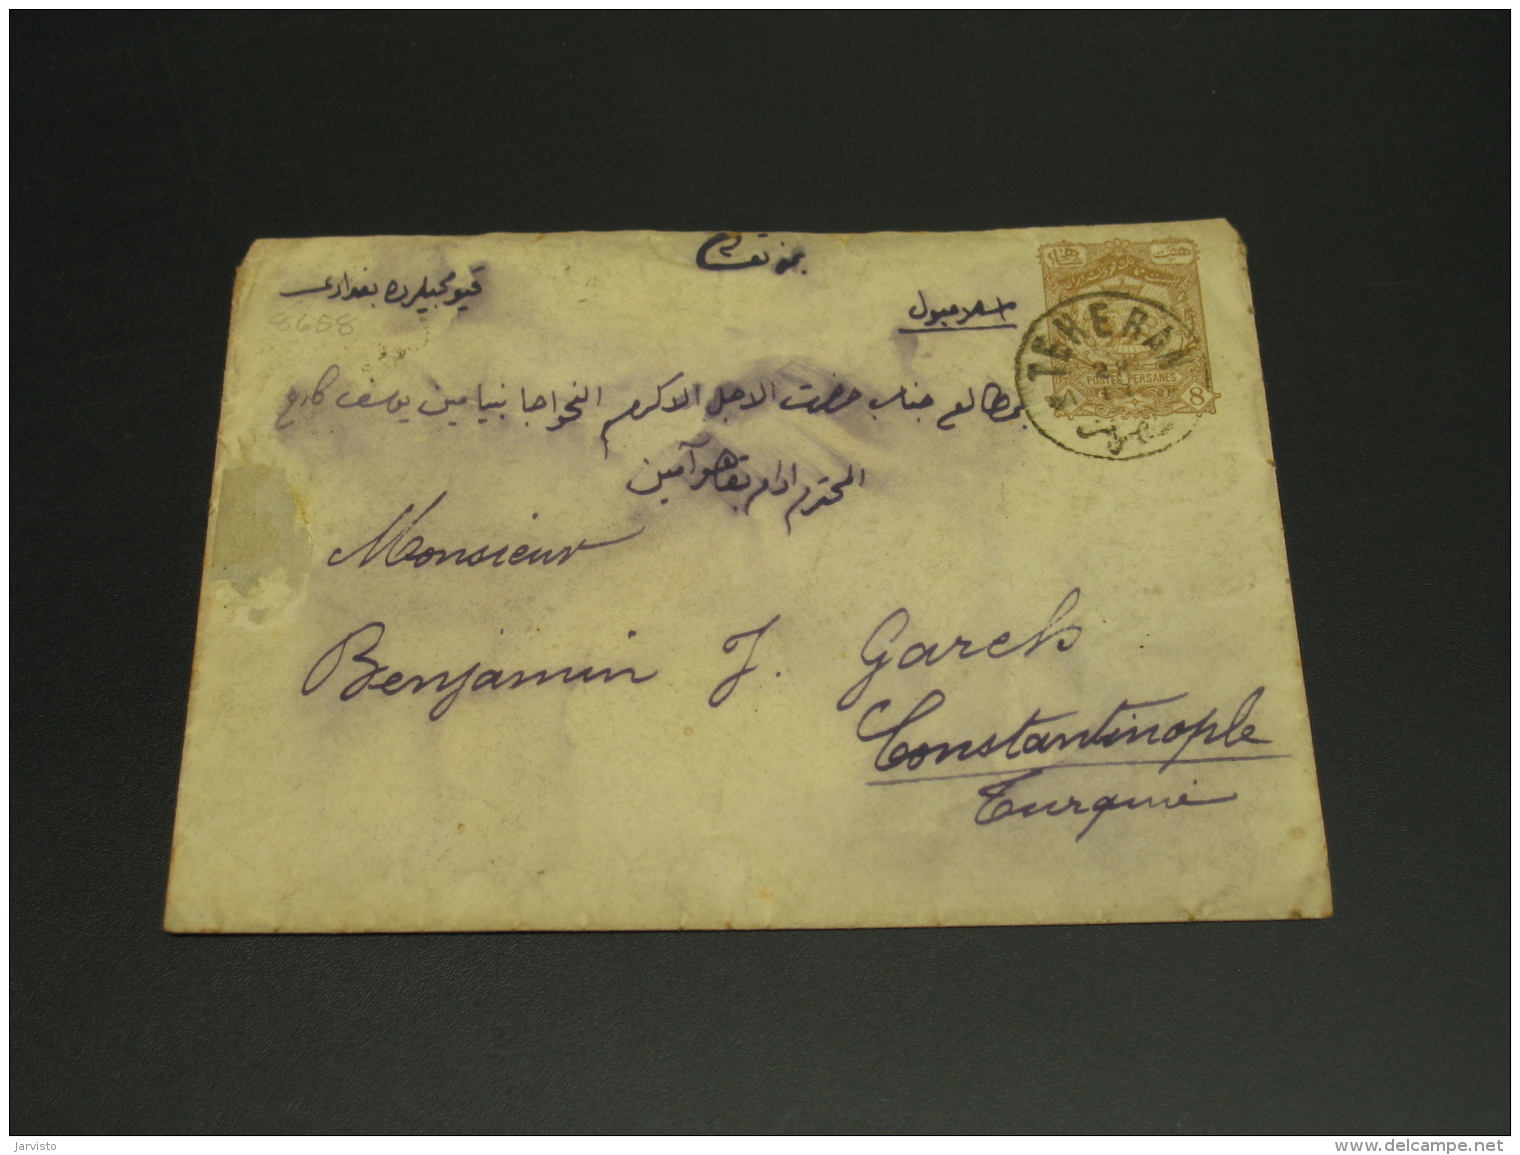 بمنه تعالى
قيومجيلرده بغدادى
اسلامبول
8658
TEHERAN
POSTES PERSANES
8
بمطالع جناب حضرت الاجل الاكرم الخواجا بنيامين يوسف كارح
المحترم ادام بقاهو آمين
Monsieur
Benjamin J. Gareh
Constantinople
Turquie
Jarvisto
www.delcampe.net